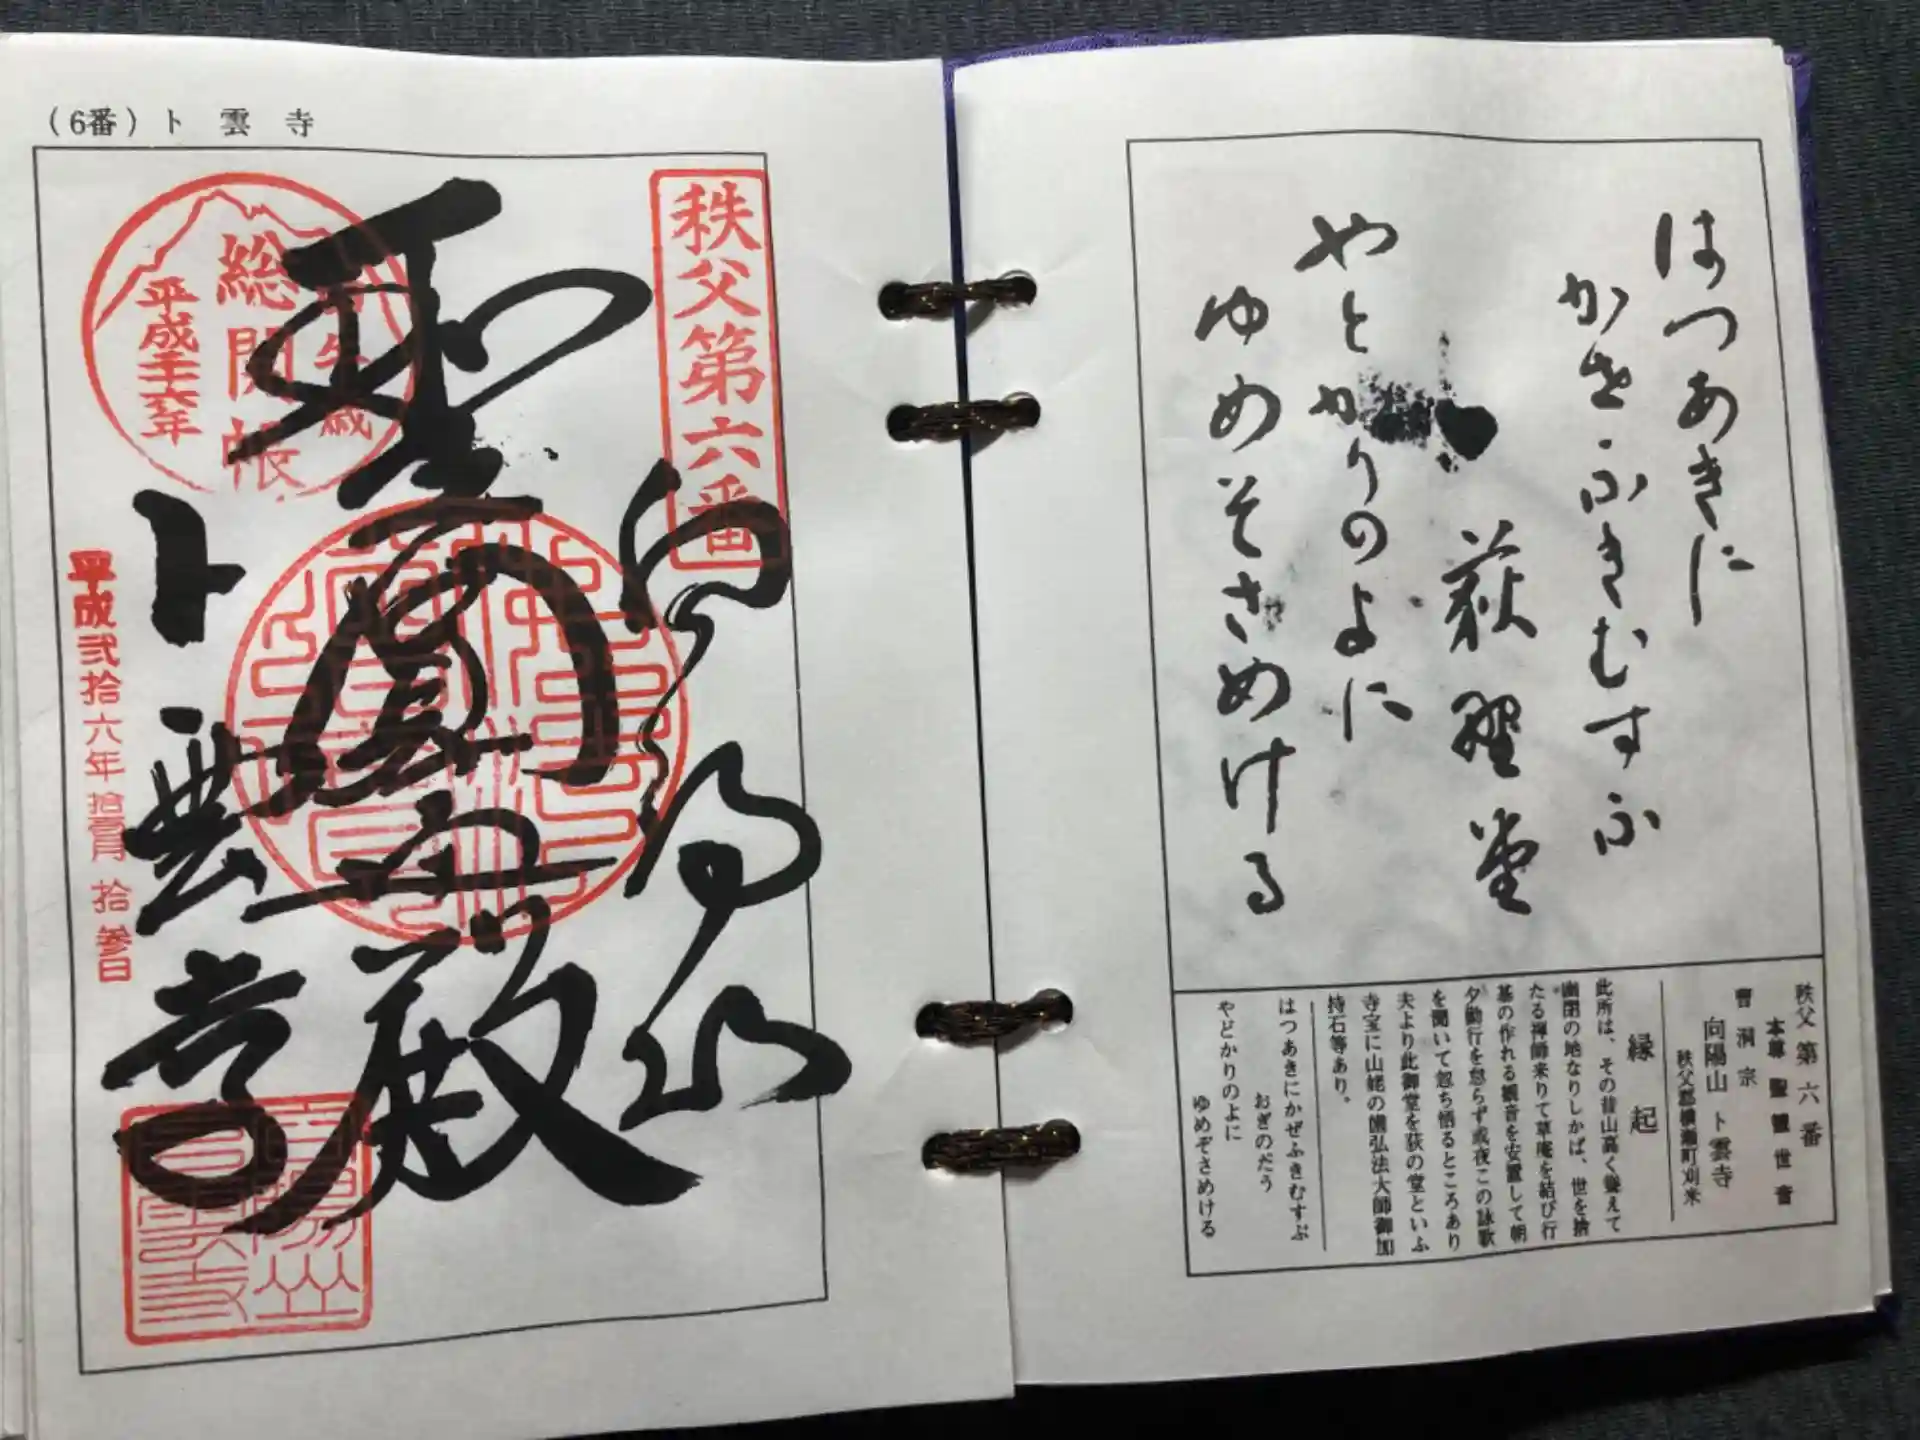 (6番) ト雲寺
秩父第六番
聖
殿
ト雲寺
総開帳
平成二十六年
平成弐拾六年拾壹月拾参日
はつあきに
かせふきむすふ
荻野堂
やとかりのよに
ゆめそさめける
秩父第六番
本尊 聖観世音
曹洞宗
向陽山 ト雲寺
秩父郡横瀬町刈米
縁起
此所は、その昔山高く聳えて
幽閉の地なりしかば、世を捨
たる禅師来りて草庵を結び行
基の作れる観音を安置して朝
夕勤行を怠らず或夜この詠歌
を聞いて忽ち悟るところあり
夫より此御堂を荻の堂といふ
寺宝に山姥の歯弘法大師御加
持石等あり。
はつあきにかぜふきむすぶ
おぎのだう
やどかりのよに
ゆめぞさめける